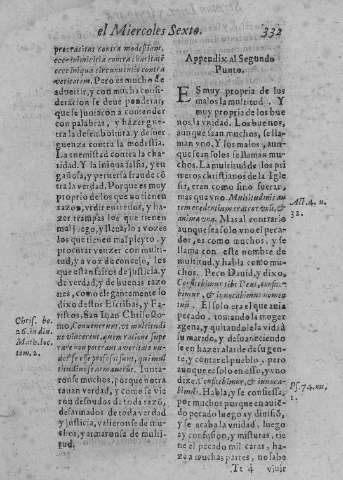 el Miercoles Sexto. 332
procacitas contra modestiam,
ecce inimicitia contra charitatẽ
ecce iniqua circunuentio contra
veritatem. Pero es mucho de
aduertir, y con mucha consi-
deracion se deue ponderar,
que se juntaron a contender
con palabras, y hazer gue-
rra la desemboltura, y de s
verguença contra la modestia.
La enemistad contra la cha-
ridad. Y la iniqua falsia, y en
gañosa, y peruersa fraude cõ
tra la verdad. Porque es muy
proprio de los que no tienen
razon, vrdir enredos, y ha-
zer trampas los que tienen
mal juego, y lleuarlo a vozes
los que tienen mal pleyto, y
procurar vencer con multi-
tud, y a voz de concejo, los
que estan faltos de justicia, y
de verdad, y de buenas razo
nes, como elegantemente lo
dixo destos Escribas, y Fa-
riseos, San Iuan Chrisosto-
mo, Conuenerunt, vt multitudi
ne vincerent, quem ratione supe
rare non poterant a veritate nu-
dos se esse professi sunt, qui mul
titudine se armauerunt. Iunta-
ronse muchos, porque no tra
taran verdad, y como se vie
ron desnudos de toda razõ,
desarmados de toda verdad
y justicia, valieronse de mu-
chos, y armaronse de multi-
tud.
Chrisost. ho.
26. in di.
Matth. loc.
tom. 2.
Appendix al Segundo
Punto.
ES muy propria de los
malos la multitud. Y
muy proprio de los bue
nos, la vnidad. Los buenos,
aunque sean muchos, se lla-
man vno. Y los malos, aun-
que sean solos se llaman mu-
chos. La multitud de los pri
meros christianos de la Igle
sia, eran como sino fueran
mas que vno. Multitudinis au
tem credentium erat cor vnũ, &
anima vna. Mas al contrario
aunque sea solo vno el peca-
dor, es como muchos, y se
llama con este nombre de
multitud, y habla como mu
chos. Peco Dauid, y dixo,
Confitebimur tibi Deus, confite-
bimur, & inuocabimus nomen
tuum. El solo era el que auia
pecado, tomando la muger
agena, y quitandole la vida
su marido, y desuaneciendo
se en hazer alarde de su gen-
te, y contar el pueblo, pero
aunque es solo en esso, y vno
dize. Confitebimur, & inuoca-
bimus. Habla, y se confiessa,
por muchos porque en auiẽ
do pecado luego ay diuisiõ,
y se acaba la vnidad, luego
ay confusion, y misturas, tie
ne el pecado mil caras, ha-
ze a muchas partes, no sabe
Act. 4. u.
32.
Ps. 74. nu.
1.
Tt 4 viuir